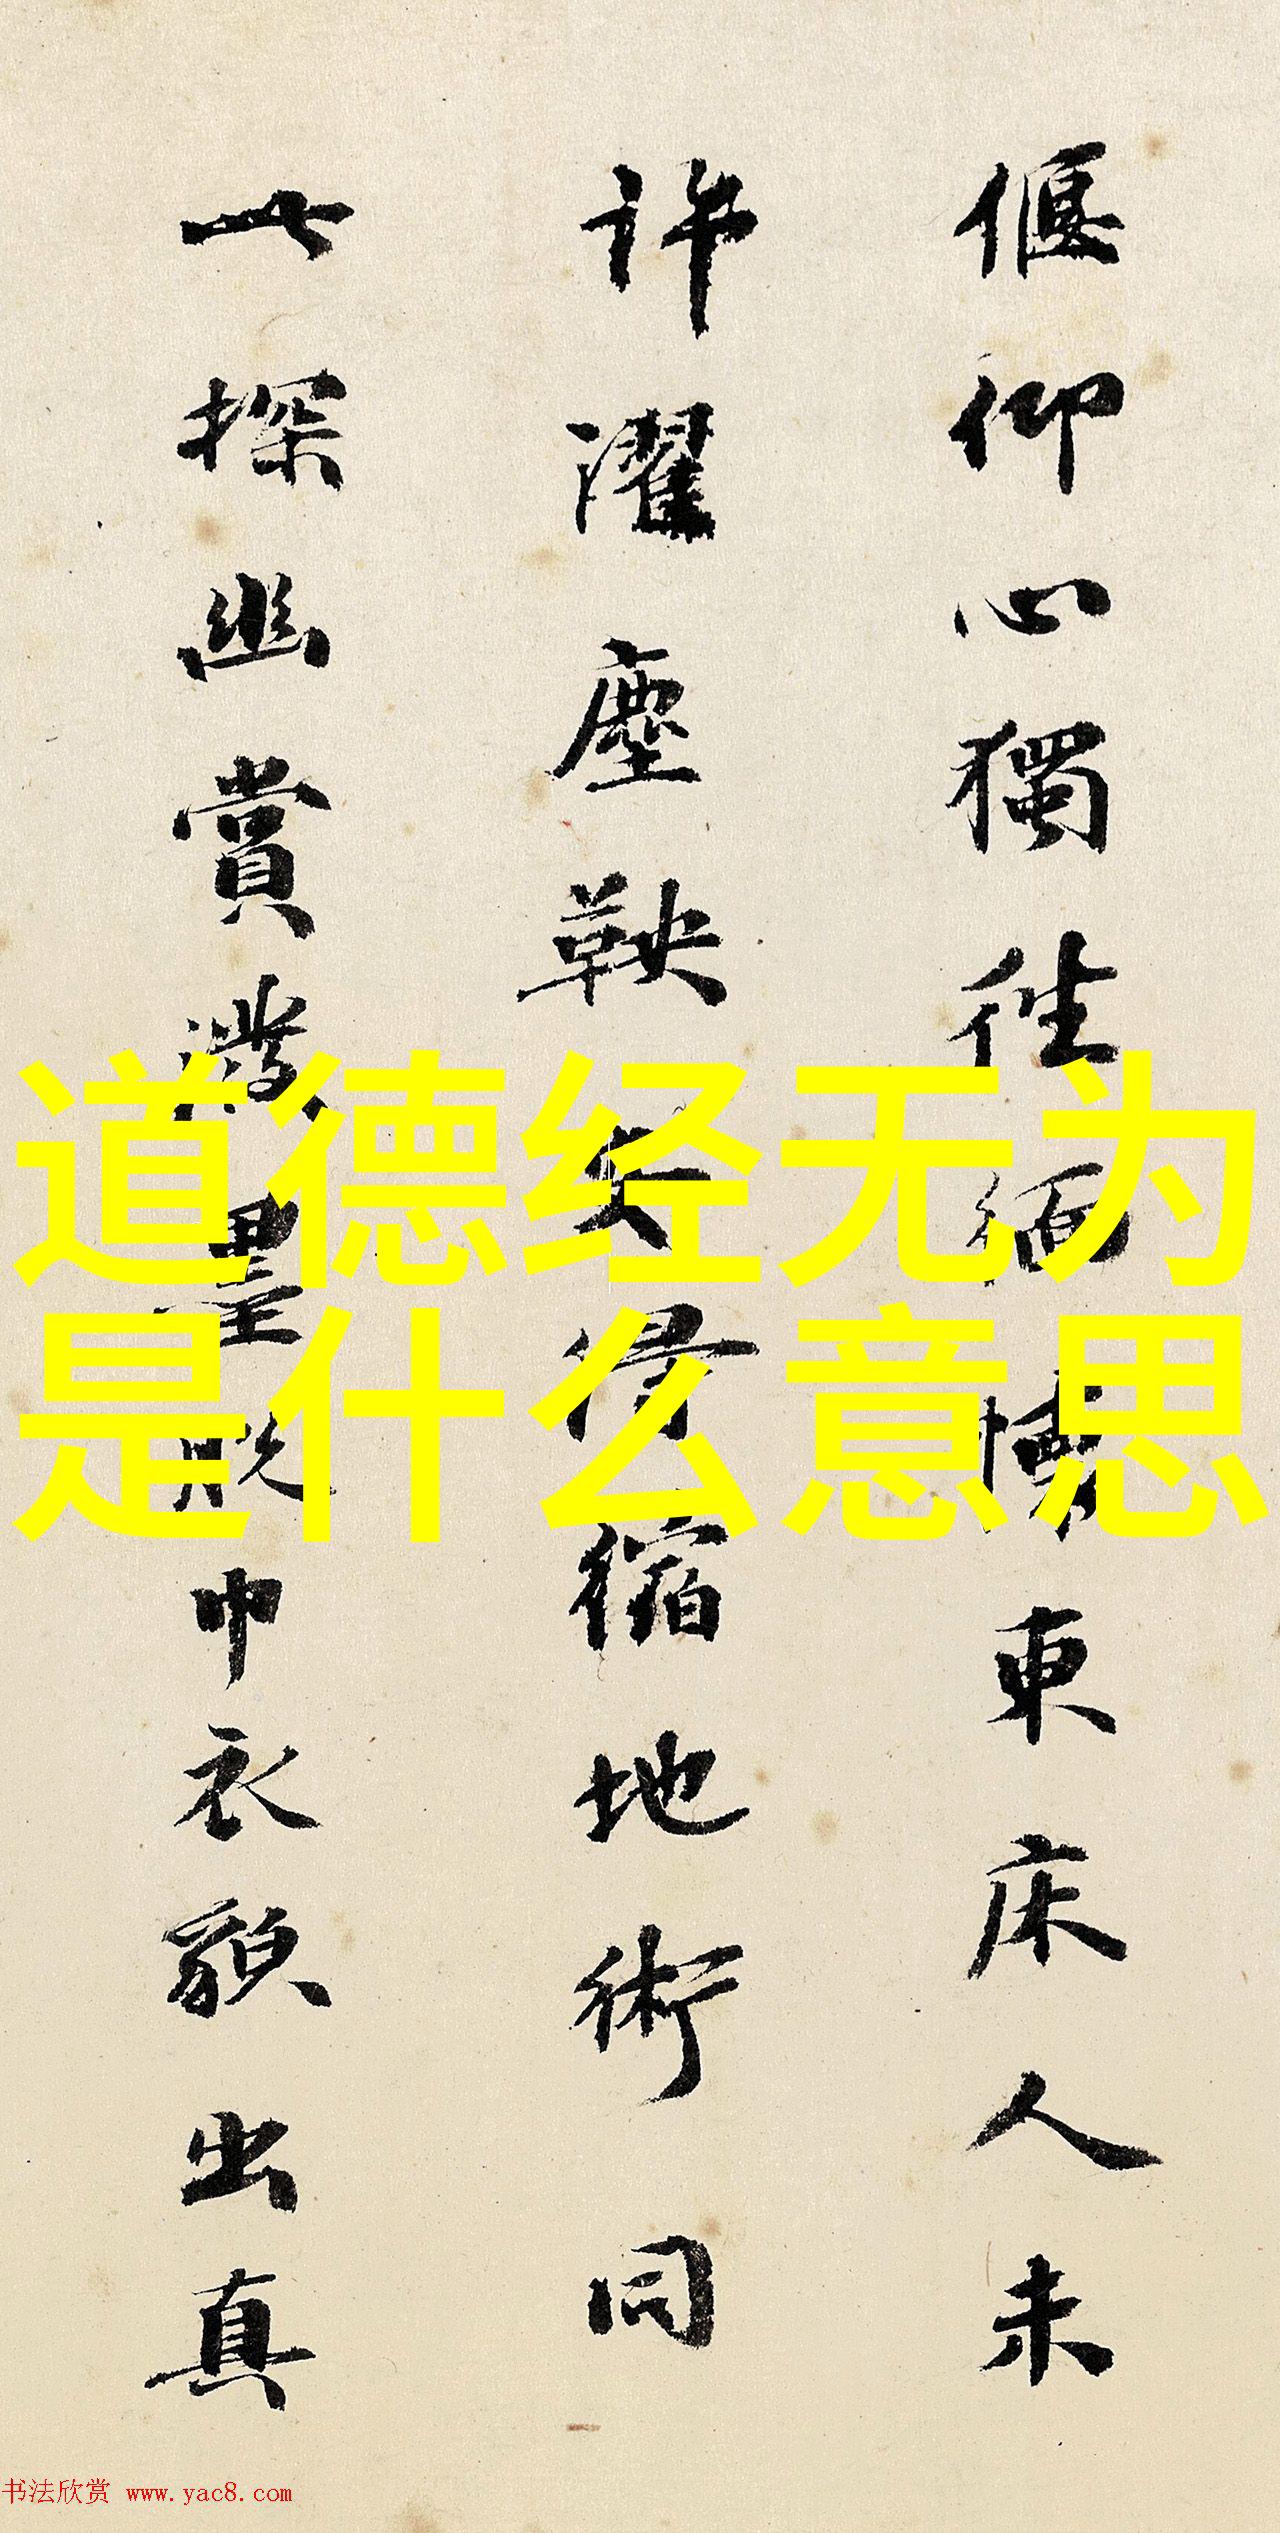 偃仰心獨往緬懷東床人未
許濯塵鞅安得縮地術同
探幽賞潑墨脫巾衣貌出真
道德经无为
是什么意思
书法欣赏 www.yac8.com